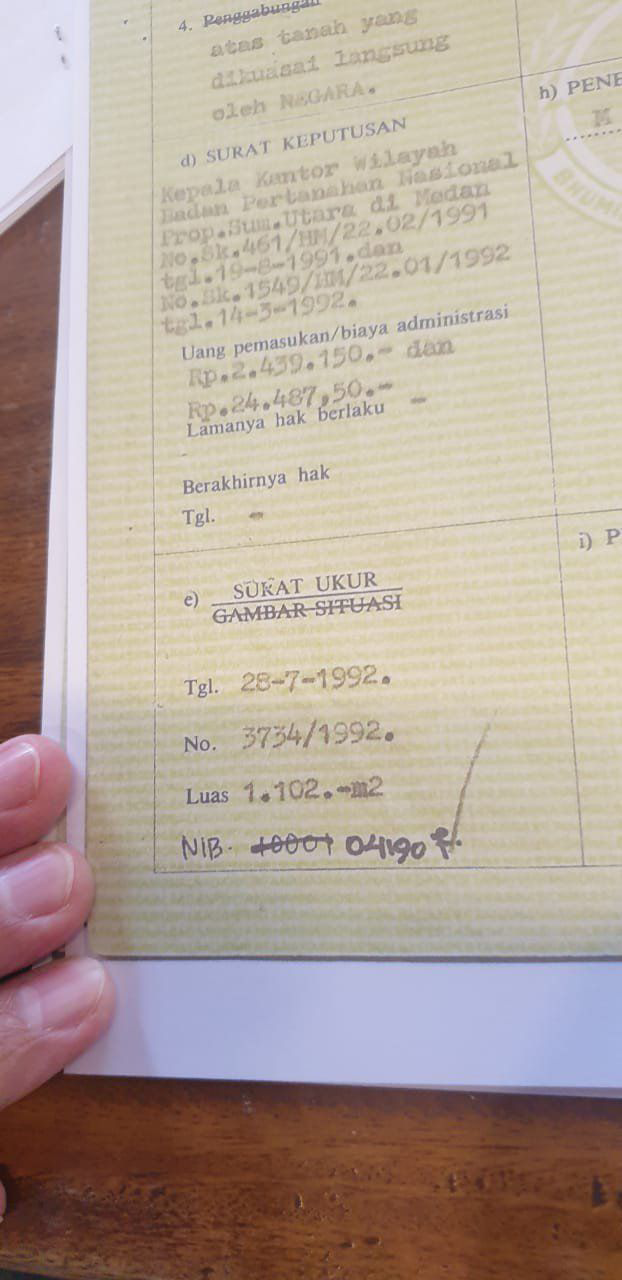 4. Penggabungan
atas tanah yang
dikuasai langsung
oleh NEGARA.
h) PENE
M
d) SURAT KEPUTUSAN
Kepala Kantor Wilayah
Badan Pertanahan Nasional
Prop.Sum.Utara di Medan
No.Sk.461/HM/22.02/1991
tgl.19-8-1991.dan
No.Sk.1549/HM/22.01/1992
tgl.14-3-1992.
Uang pemasukan/biaya administrasi
Rp.2.439.150.- dan
Rp.24.487,50.-
Lamanya hak berlaku -
-
Berakhirnya hak
Tgl. -
i) P
e) SURAT UKUR
GAMBAR SITUASI
Tgl. 28-7-1992.
No. 3734/1992.
Luas 1.102.-m2
NIB. 10001 04190
BHUMI